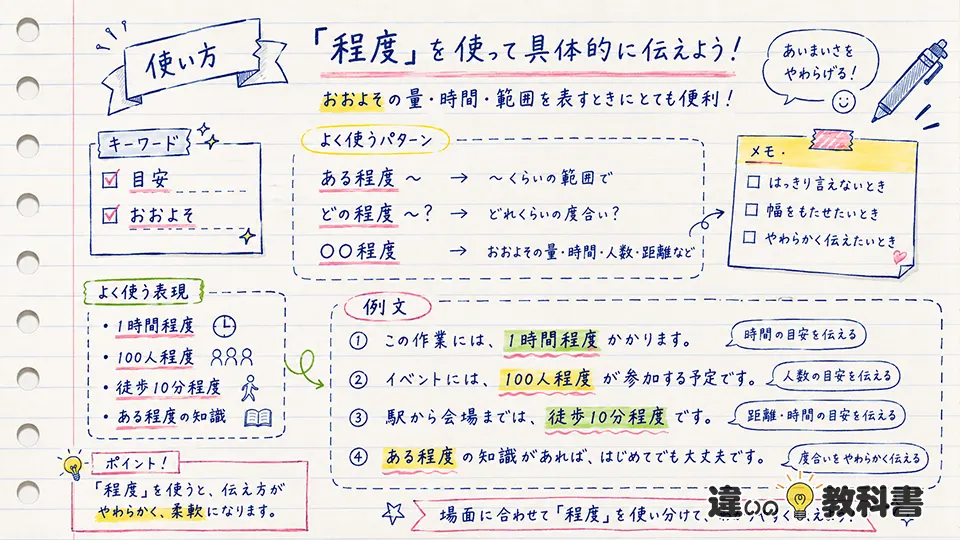 使い方
「程度」を使って具体的に伝えよう！
おおよその量・時間・範囲を表すときにとても便利！
あいまいさを
やわらげる！
キーワード
目安
おおよそ
よく使うパターン
ある程度 ～ → ～くらいの範囲で
どの程度 ～？ → どれくらいの度合い？
〇〇程度 → おおよその量・時間・人数・距離など
メモ・
はっきり言えないとき
幅をもたせたいとき
やわらかく伝えたいとき
よく使う表現
・1時間程度
・100人程度
・徒歩10分程度
・ある程度の知識
例文
① この作業には、1時間程度かかります。 時間の目安を伝える
② イベントには、100人程度が参加する予定です。 人数の目安を伝える
③ 駅から会場までは、徒歩10分程度です。 距離・時間の目安を伝える
④ ある程度の知識があれば、はじめてでも大丈夫です。 度合いをやわらかく伝える
ポイント！
「程度」を使うと、伝え方が
やわらかく、柔軟になります。
場面に合わせて「程度」を使い分けて、
違いの教科書